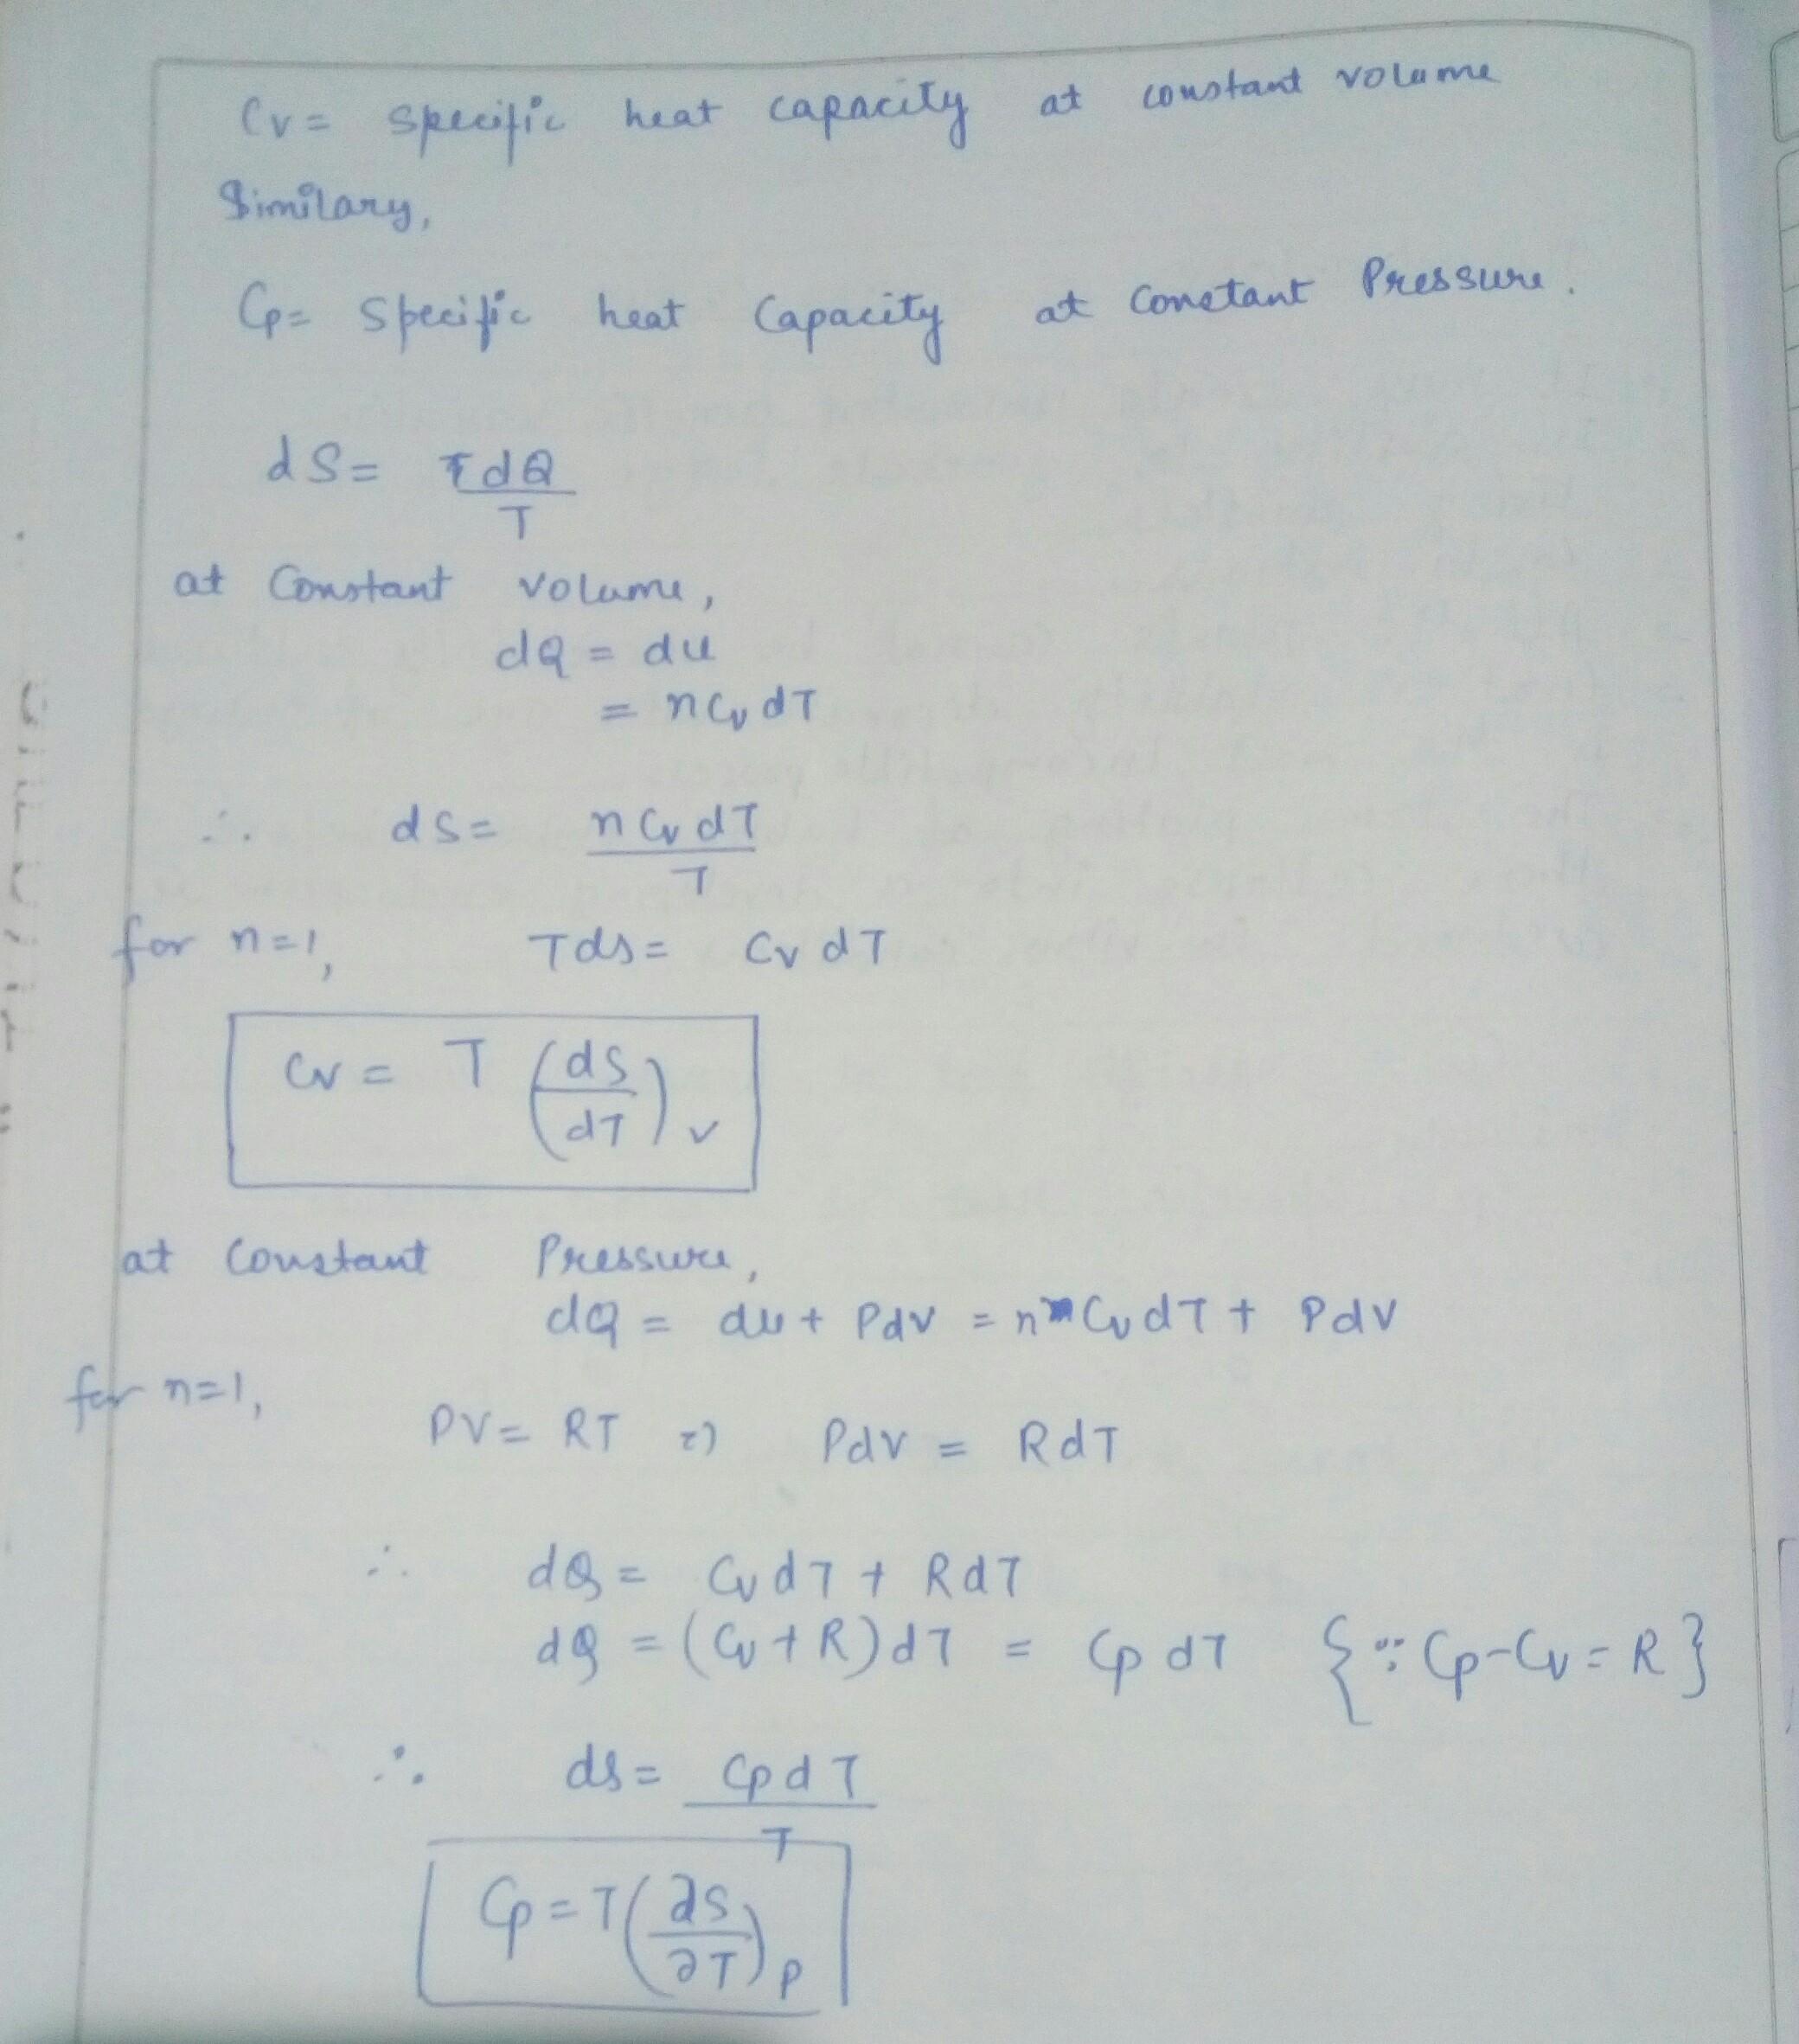 Cv = specific heat capacity at constant volume
Similary,
Cp = specific heat capacity at constant Pressure.
dS = dQ
T
at constant volume,
dQ = du
= nCv dT
∴ dS = nCv dT
T
for n=1, Tds = Cv dT
Cv = T (dS/dT)v
at constant Pressure,
dQ = du + PdV = n Cv dT + PdV
for n=1,
PV = RT => PdV = RdT
∴ dQ = Cv dT + RdT
dQ = (Cv + R) dT = Cp dT {∵ Cp - Cv = R}
∴ ds = Cp dT
T
Cp = T (∂S/∂T)P